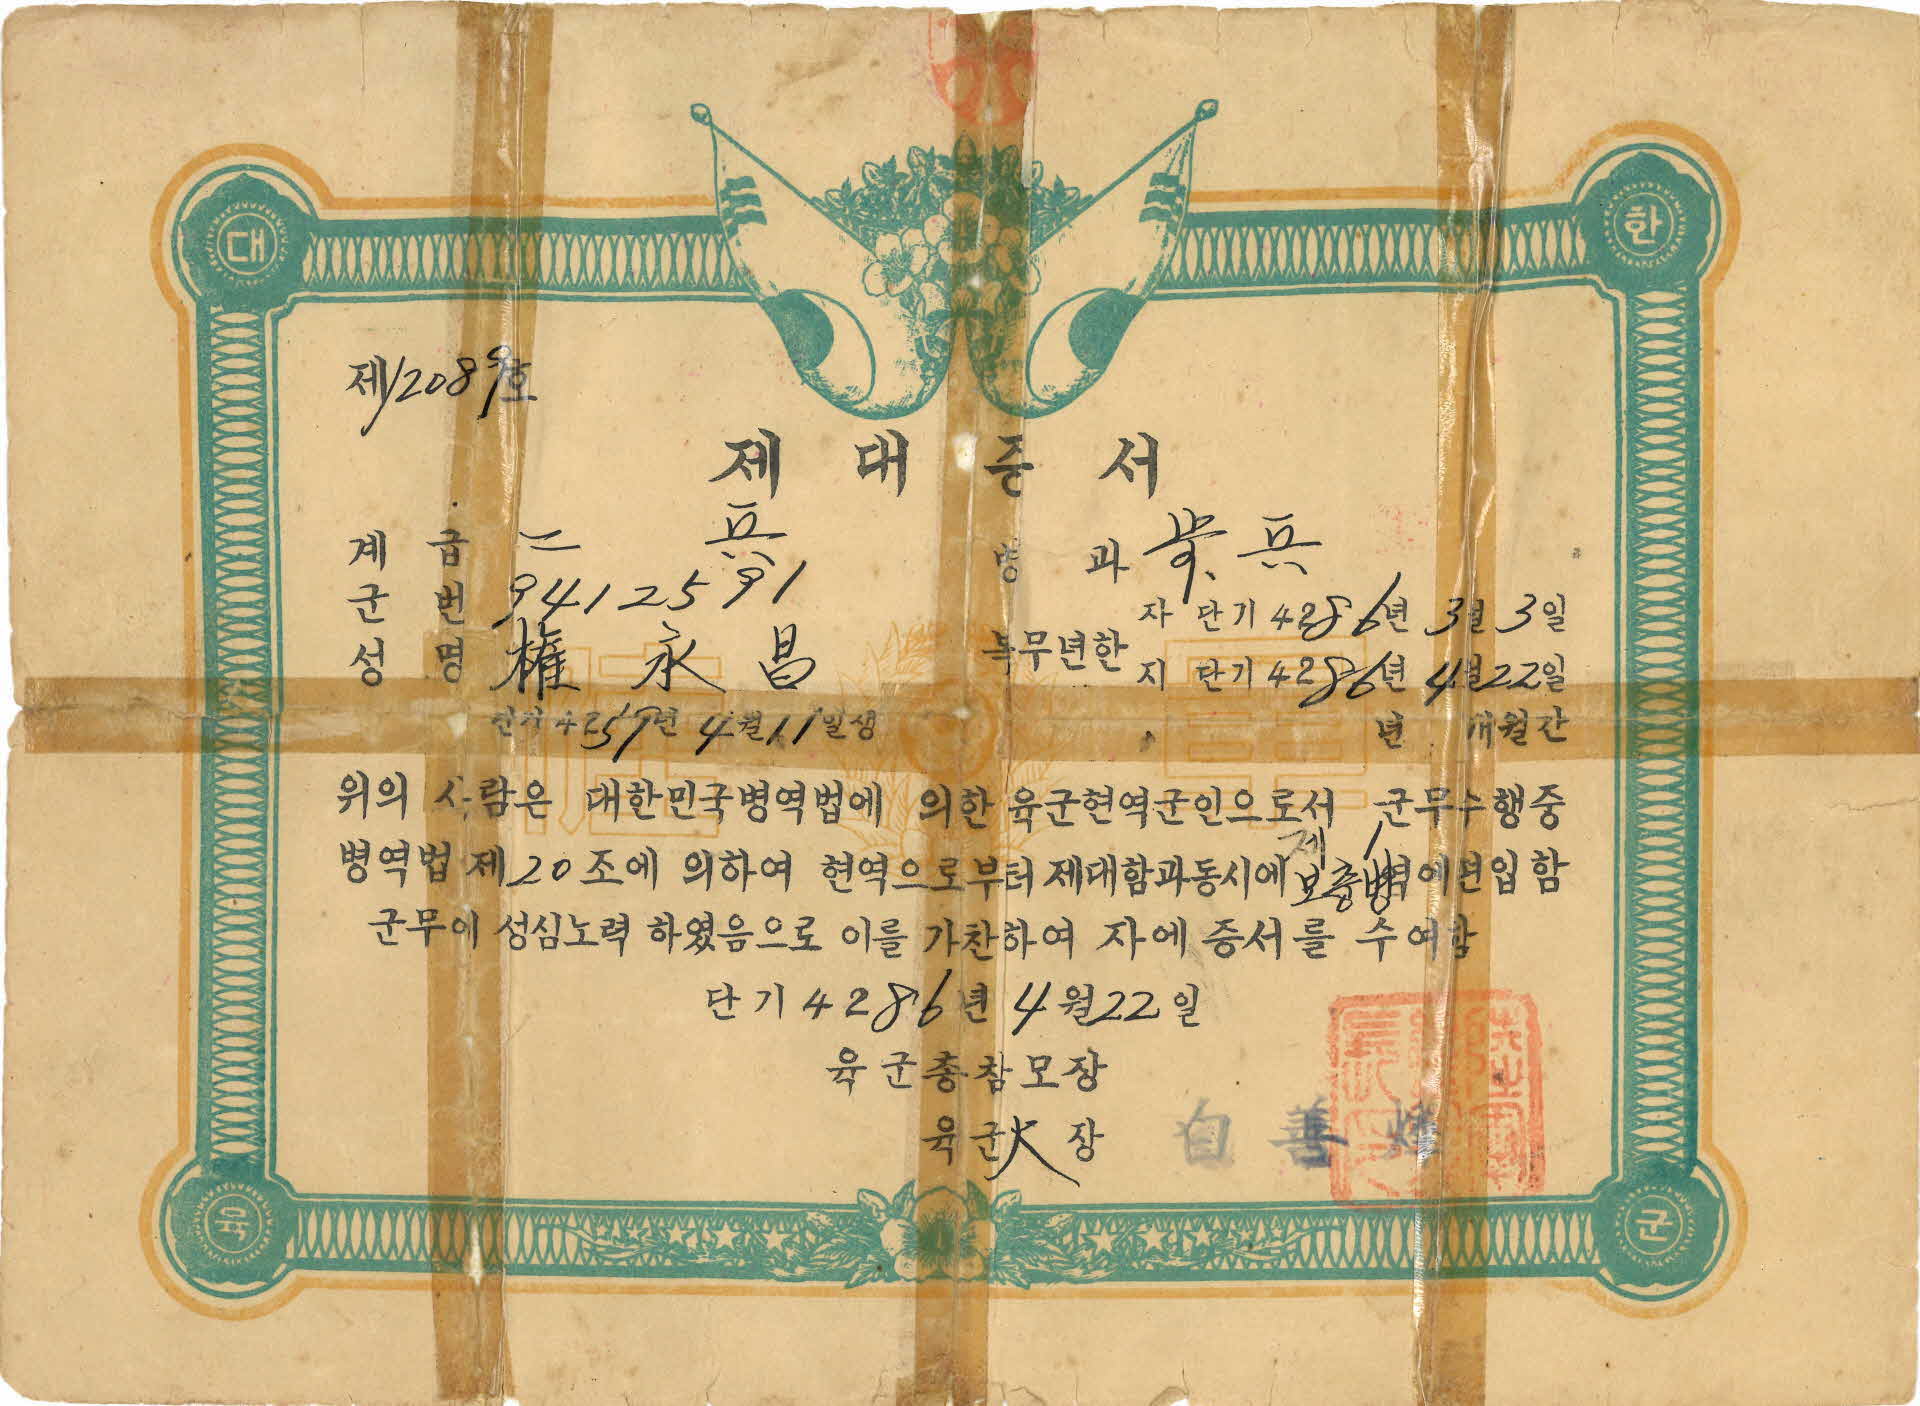 대 한
제12089호
제대증서
계급 二兵 병과 步兵
군번 94125591
성명 權永昌
복무년한 자 단기4286년 3월 3일
지 단기4286년 4월 22일
단기4257년 4월 11일생
년 개월간
陸 軍
위의 사람은 대한민국병역법에 의한 육군현역군인으로서 군무수행중
병역법 제20조에 의하여 현역으로부터 제대함과동시에 제1보충병역에편입함
군무에 성심노력 하였음으로 이를 가찬하여 자에 증서를 수여함
단기4286년 4월22일
육군총참모장
육군大장 白善燁
육 군